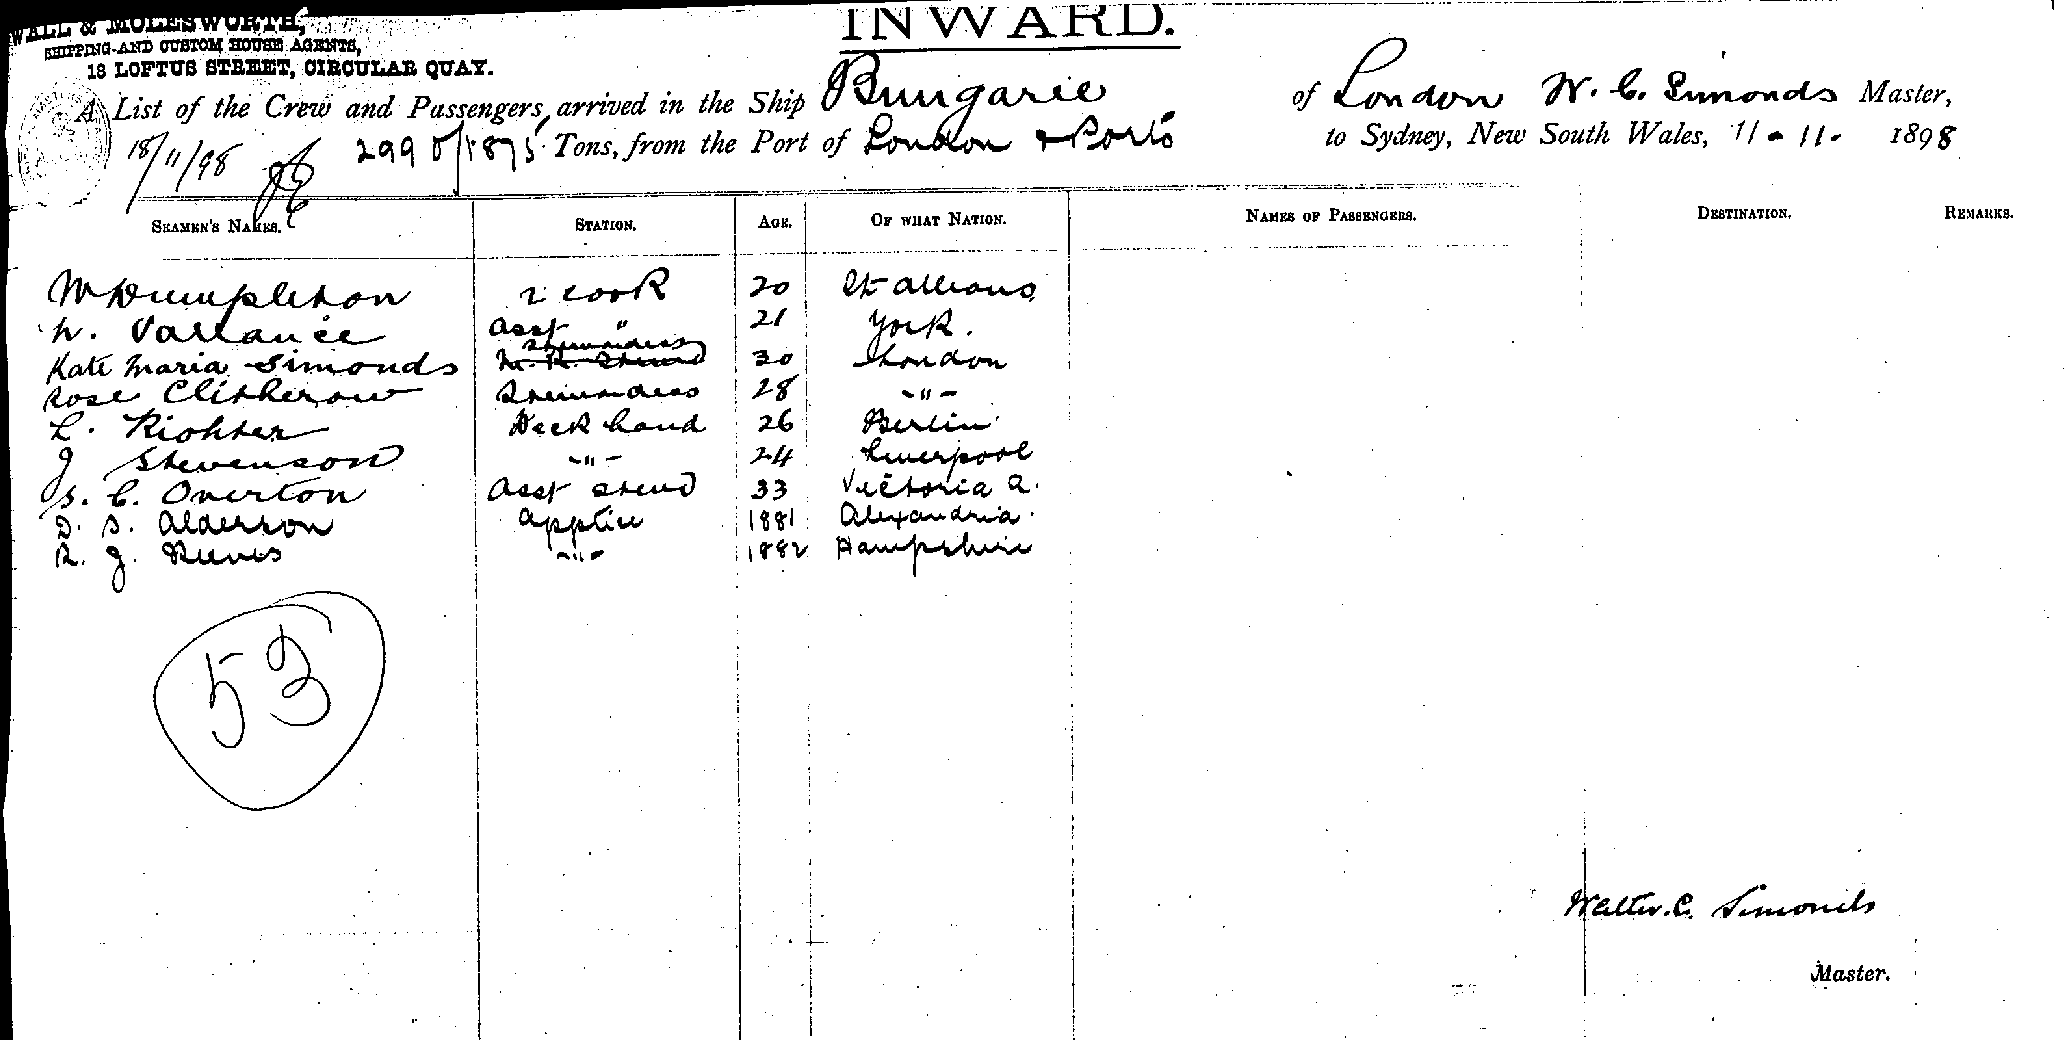 WALL & MOLESWORTH,
SHIPPING AND CUSTOM HOUSE AGENTS,
18 LOFTUS STREET, CIRCULAR QUAY.
INWARD.
A List of the Crew and Passengers, arrived in the Ship Bungaree of London W. C. Simonds Master,
18/11/98 Tons, from the Port of London & Ports to Sydney, New South Wales, 11-11- 1898
SEAMEN'S NAMES. STATION. AGE. OF WHAT NATION. NAMES OF PASSENGERS. DESTINATION. REMARKS.
W Dumpleton 2 Cook 20 St Albans
Vallance Asst " 21 York.
Kate Maria Simonds Stewardess 30 London
Rose Clitherow Stewardess 28 -"-
L. Richter Deck hand 26 Berlin
J Stevenson -"- 24 Liverpool
S. C. Overton Asst Stewd 33 Victoria a.
D. S. Alderson Apptice 1881 Alexandria.
R. J. Reeves -"- 1882 Hampshire
53
Walter. C. Simonds
Master.